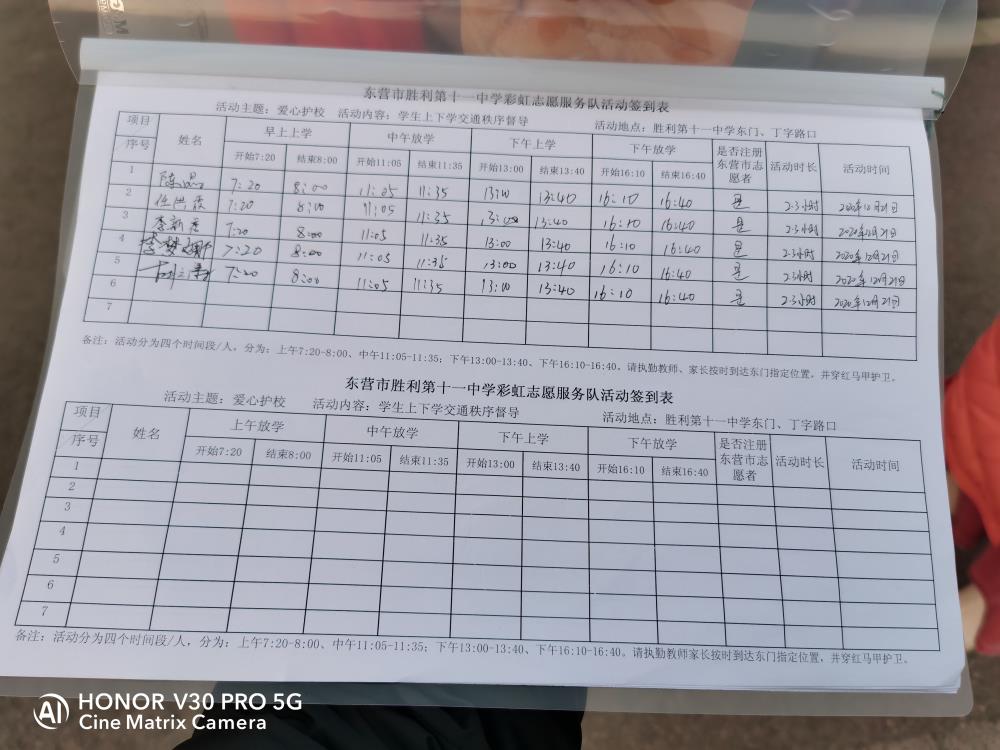 东营市胜利第十一中学彩虹志愿服务队活动签到表
活动主题：爱心护校 活动内容：学生上下学交通秩序督导 活动地点：胜利第十一中学东门、丁字路口
项目 姓名 早上上学 中午放学 下午上学 下午放学 是否注册东营市志愿者 活动时长 活动时间
序号 开始7:20 结束8:00 开始11:05 结束11:35 开始13:00 结束13:40 开始16:10 结束16:40
1 7:20 8:00 11:05 11:35 13:00 13:40 16:10 16:40 是 2.3小时 2020年12月21日
2 7:20 8:00 11:05 11:35 13:00 13:40 16:10 16:40 是 2.3小时 2020年12月21日
3 7:20 8:00 11:05 11:35 13:00 13:40 16:10 16:40 是 2.3小时 2020年12月21日
4 7:20 8:00 11:05 11:35 13:00 13:40 16:10 16:40 是 2.3小时 2020年12月21日
5 7:20 8:00 11:05 11:35 13:00 13:40 16:10 16:40 是 2.3小时 2020年12月21日
6
7
备注：活动分为四个时间段/人，分为：上午7:20-8:00、中午11:05-11:35；下午13:00-13:40、下午16:10-16:40。请执勤教师、家长按时到达东门指定位置，并穿红马甲护卫。
东营市胜利第十一中学彩虹志愿服务队活动签到表
活动主题：爱心护校 活动内容：学生上下学交通秩序督导 活动地点：胜利第十一中学东门、丁字路口
项目 姓名 上午放学 中午放学 下午上学 下午放学 是否注册东营市志愿者 活动时长 活动时间
序号 开始7:20 结束8:00 开始11:05 结束11:35 开始13:00 结束13:40 开始16:10 结束16:40
1
2
3
4
5
6
7
备注：活动分为四个时间段/人，分为：上午7:20-8:00、中午11:05-11:35；下午13:00-13:40、下午16:10-16:40。请执勤教师家长按时到达东门指定位置，并穿红马甲护卫。
AI HONOR V30 PRO 5G
Cine Matrix Camera